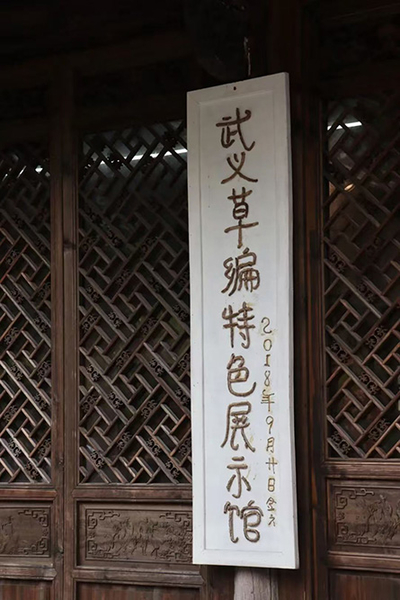 武义草编特色展示馆
2018年9月廿日